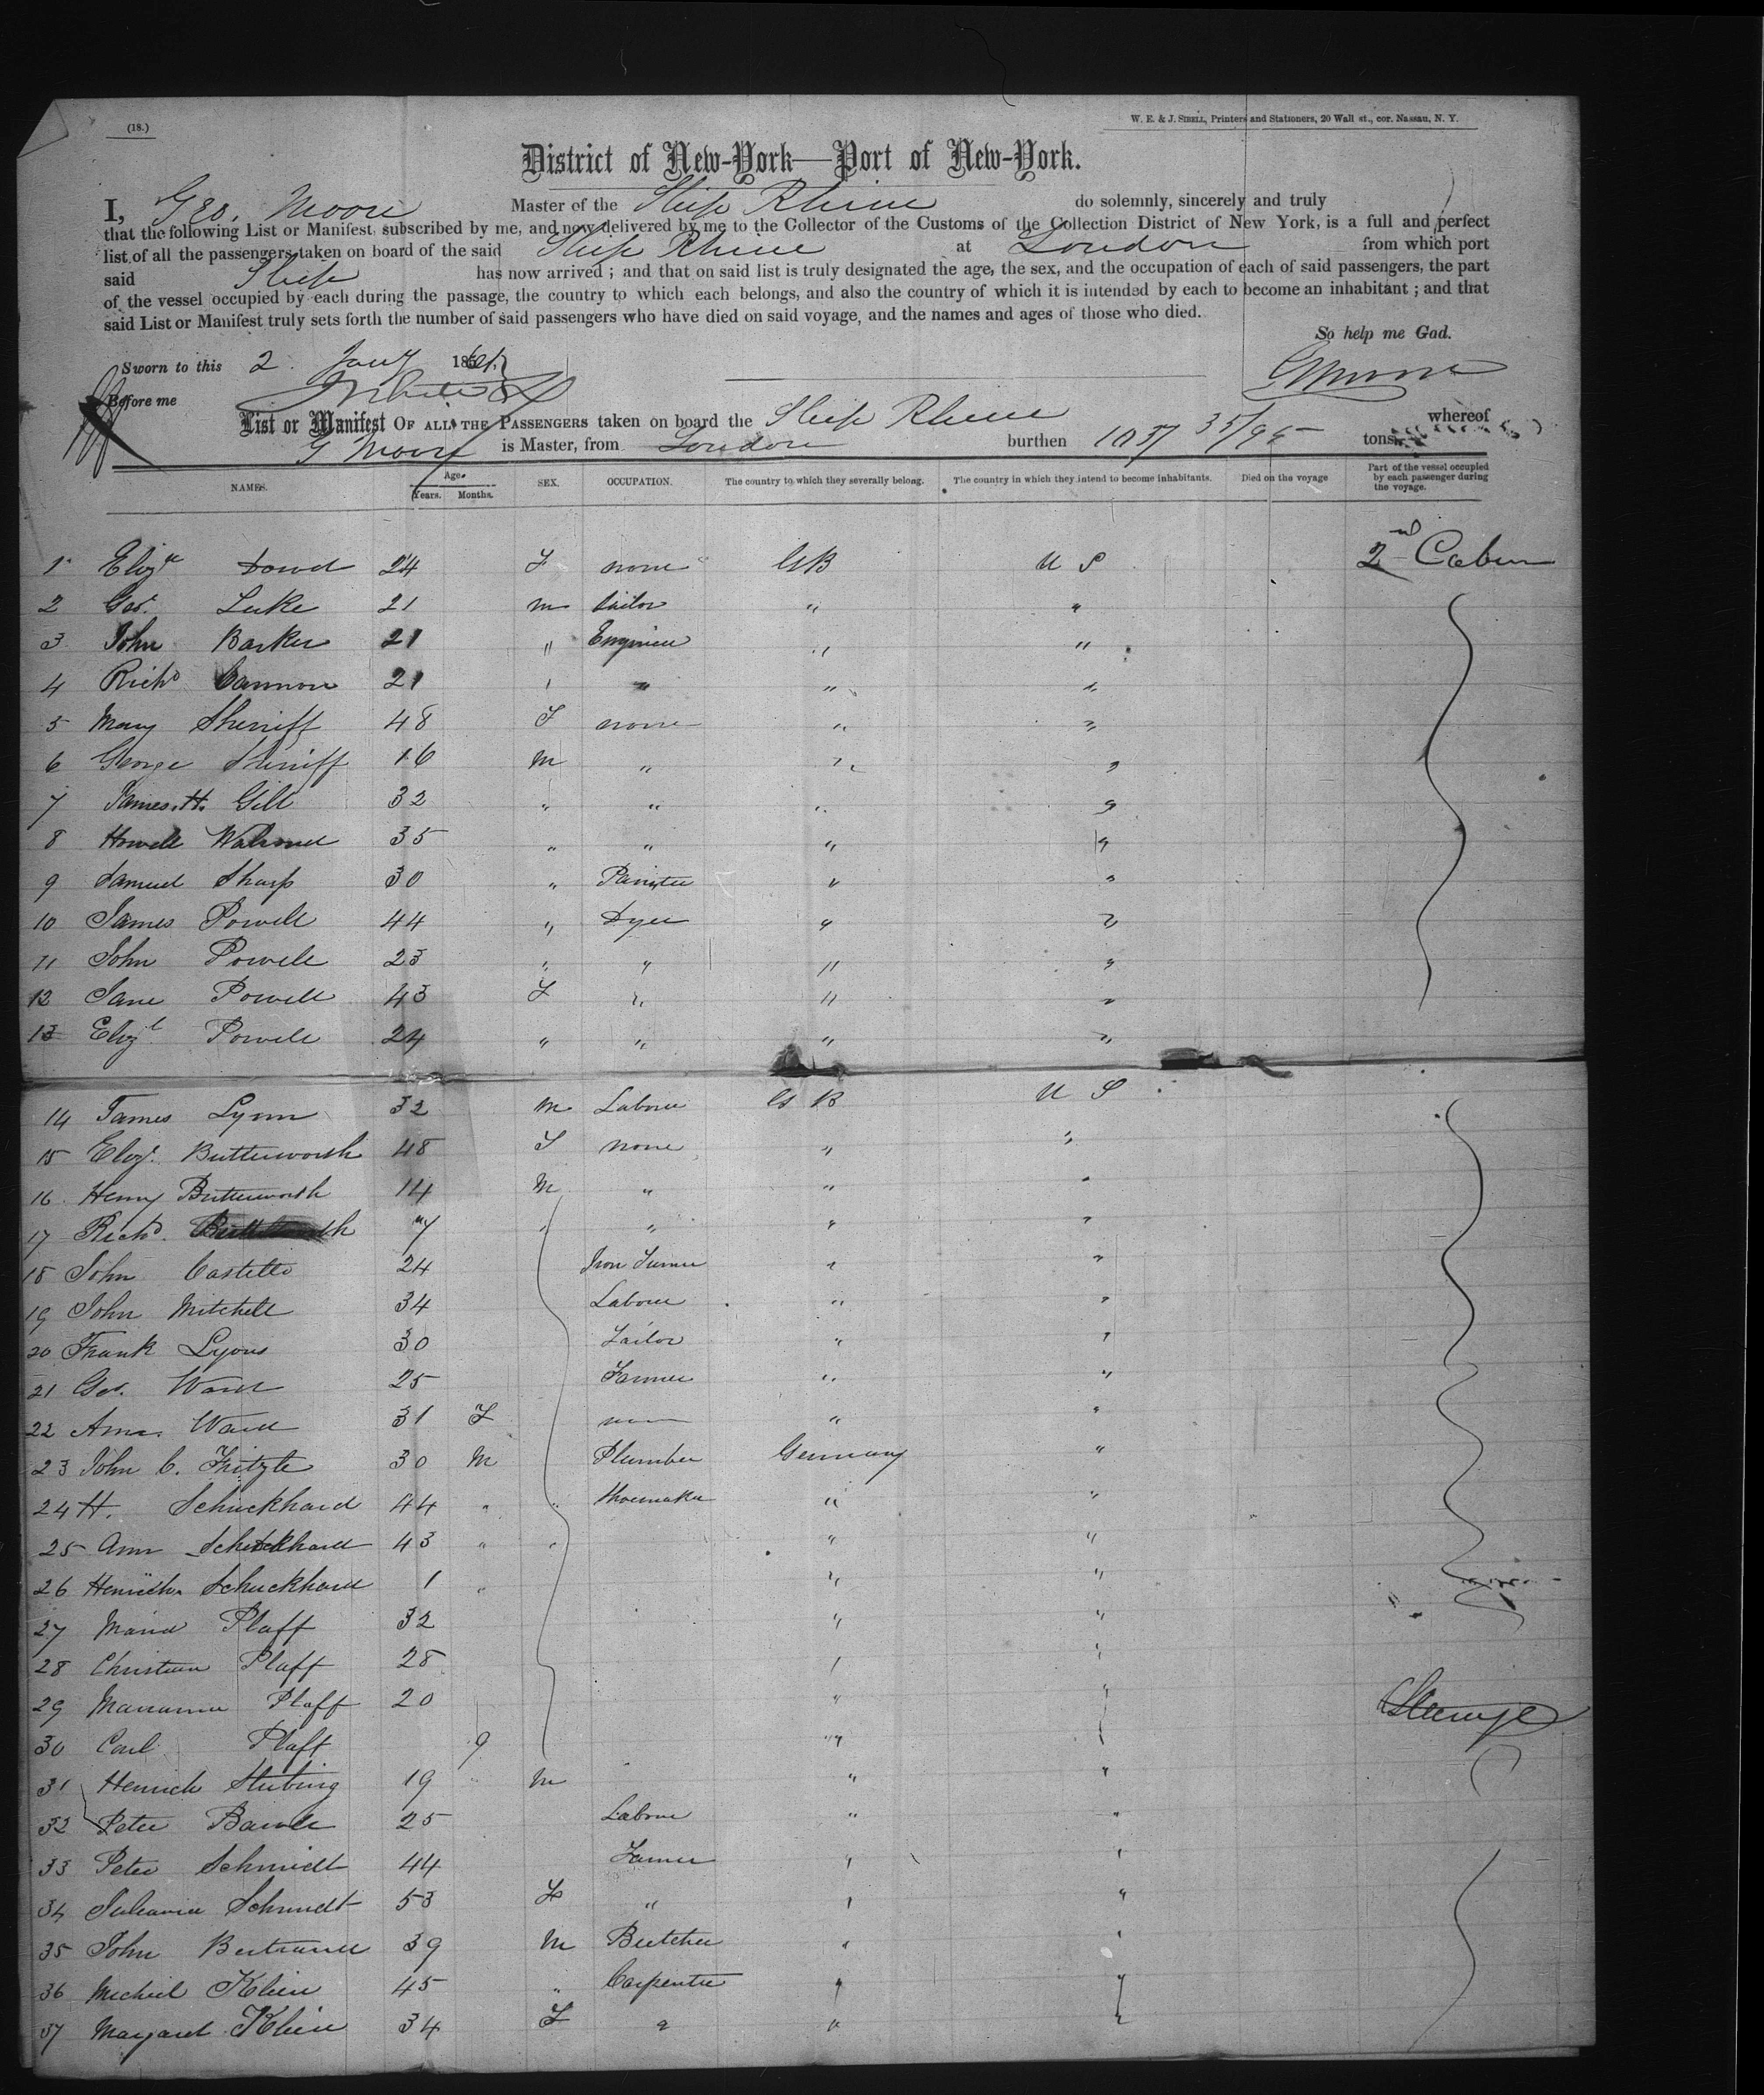 (18.)
W. E. & J. SIBELL, Printers and Stationers, 20 Wall st., cor. Nassau, N. Y.
District of New-York—Port of New-York.
I, Geo. Moore Master of the Ship Rhine do solemnly, sincerely and truly
that the following List or Manifest, subscribed by me, and now delivered by me to the Collector of the Customs of the Collection District of New York, is a full and perfect
list of all the passengers taken on board of the said Ship Rhine at London from which port
said Ship has now arrived ; and that on said list is truly designated the age, the sex, and the occupation of each of said passengers, the part
of the vessel occupied by each during the passage, the country to which each belongs, and also the country of which it is intended by each to become an inhabitant ; and that
said List or Manifest truly sets forth the number of said passengers who have died on said voyage, and the names and ages of those who died.
So help me Gad.
Sworn to this 2 Jany 1861
GMoore
Before me
List or Manifest OF ALL THE PASSENGERS taken on board the Ship Rhine whereof
G Moore is Master, from London burthen 1037 35/95 tons
NAMES. Age. Years. Months. SEX. OCCUPATION. The country to which they severally belong. The country in which they intend to become inhabitants. Died on the voyage Part of the vessel occupied by each passenger during the voyage.
1 Elizth Dowd 24 F none GB U S 2nd Cabin
2 Geo. Luke 21 m tailor " "
3 John Barker 21 " Engineer " "
4 Richd Cannon 21 " " " "
5 Mary Sherriff 48 F none " "
6 George Sherriff 16 m " " "
7 James H. Gill 32 " " " "
8 Howell 35 " " " "
9 Samuel Sharp 30 " Painter " "
10 James Powell 44 " Dyer " "
11 John Powell 23 " " " "
12 Jane Powell 43 F " " "
13 Elizt Powell 24 " " " "
14 James Lynn 32 m Laborer G B U S
15 Elizt Butterworth 48 F none " "
16 Henry Butterworth 14 m " " "
17 Richd. Butterworth 7 " " " "
18 John Costello 24 Iron Turner " "
19 John Mitchell 34 Laborer " "
20 Frank Lyons 30 Tailor " "
21 Geo. Ward 25 Farmer " "
22 Ann Ward 31 F none " "
23 John C. 30 m Plumber Germany "
24 H. Schuckhard 44 " " Shoemaker " "
25 Ann Schuckhard 43 " " " "
26 Schuckhard 1 " " "
27 Maria Plaff 32 " "
28 Christian Plaff 28 " "
29 Marianna Plaff 20 " "
30 Carl Plaff 9 " " Steerage
31 Henrich Stubing 19 " m " "
32 Peter 25 Laborer " "
33 Peter Schmidt 44 Farmer " "
34 Schmidt 53 F " " "
35 John Bertrand 39 m Butcher " "
36 Michiel Klein 45 " Carpenter " "
37 Margaret Klein 34 F " " "